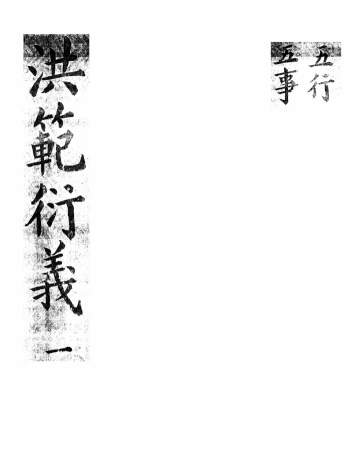 五行
五事
洪範衍義 一